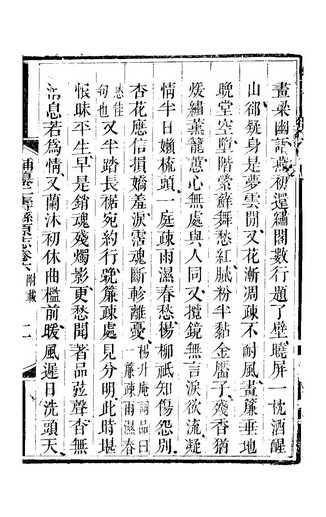 畫梁幽語燕初還繡閣數行題了壁曉屏一枕酒醒
山郤餓身是夢雲閒又花漸凋疎不耐風畫簾垂地
晚堂空墮階縈蘚舞愁紅膩粉半黏金靨子殘香猶
煖繡薰籠蕙心無處與人同又攬鏡無言淚欲流凝
情半日懶梳頭一庭疎雨濕春愁楊柳祇知傷怨別
杏花應信損嬌羞淚霑魂斷軫離憂楊升庵詞品曰一簾疎雨濕春
愁佳句也又半踏長裾宛約行晚簾疎處見分明此時堪
恨昧平生早是銷魂殘燭影更愁聞著品弦聲杳無
消息若為情又蘭沐初休曲檻前暖風遲日洗頭天
附載
二